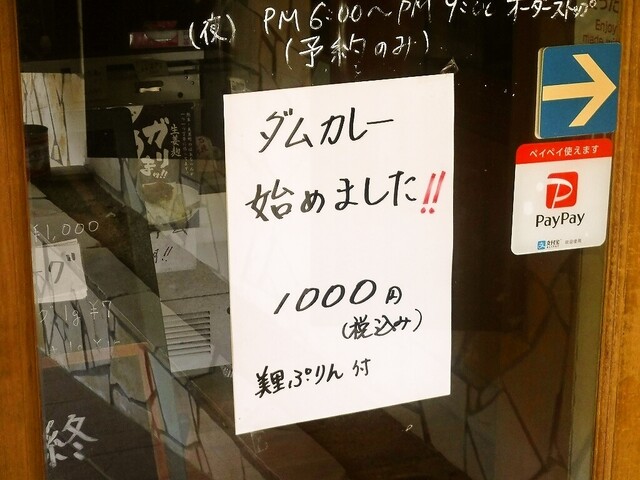 (夜) PM 6:00〜PM 9:00 オーダーストップ
(予約のみ)
ダムカレー
始めました!!
1000円
(税込み)
美里ぷりん付
ペイペイ使えます
PayPay
Enjoy
生姜麹
ガリ
¥1,000
グ
終